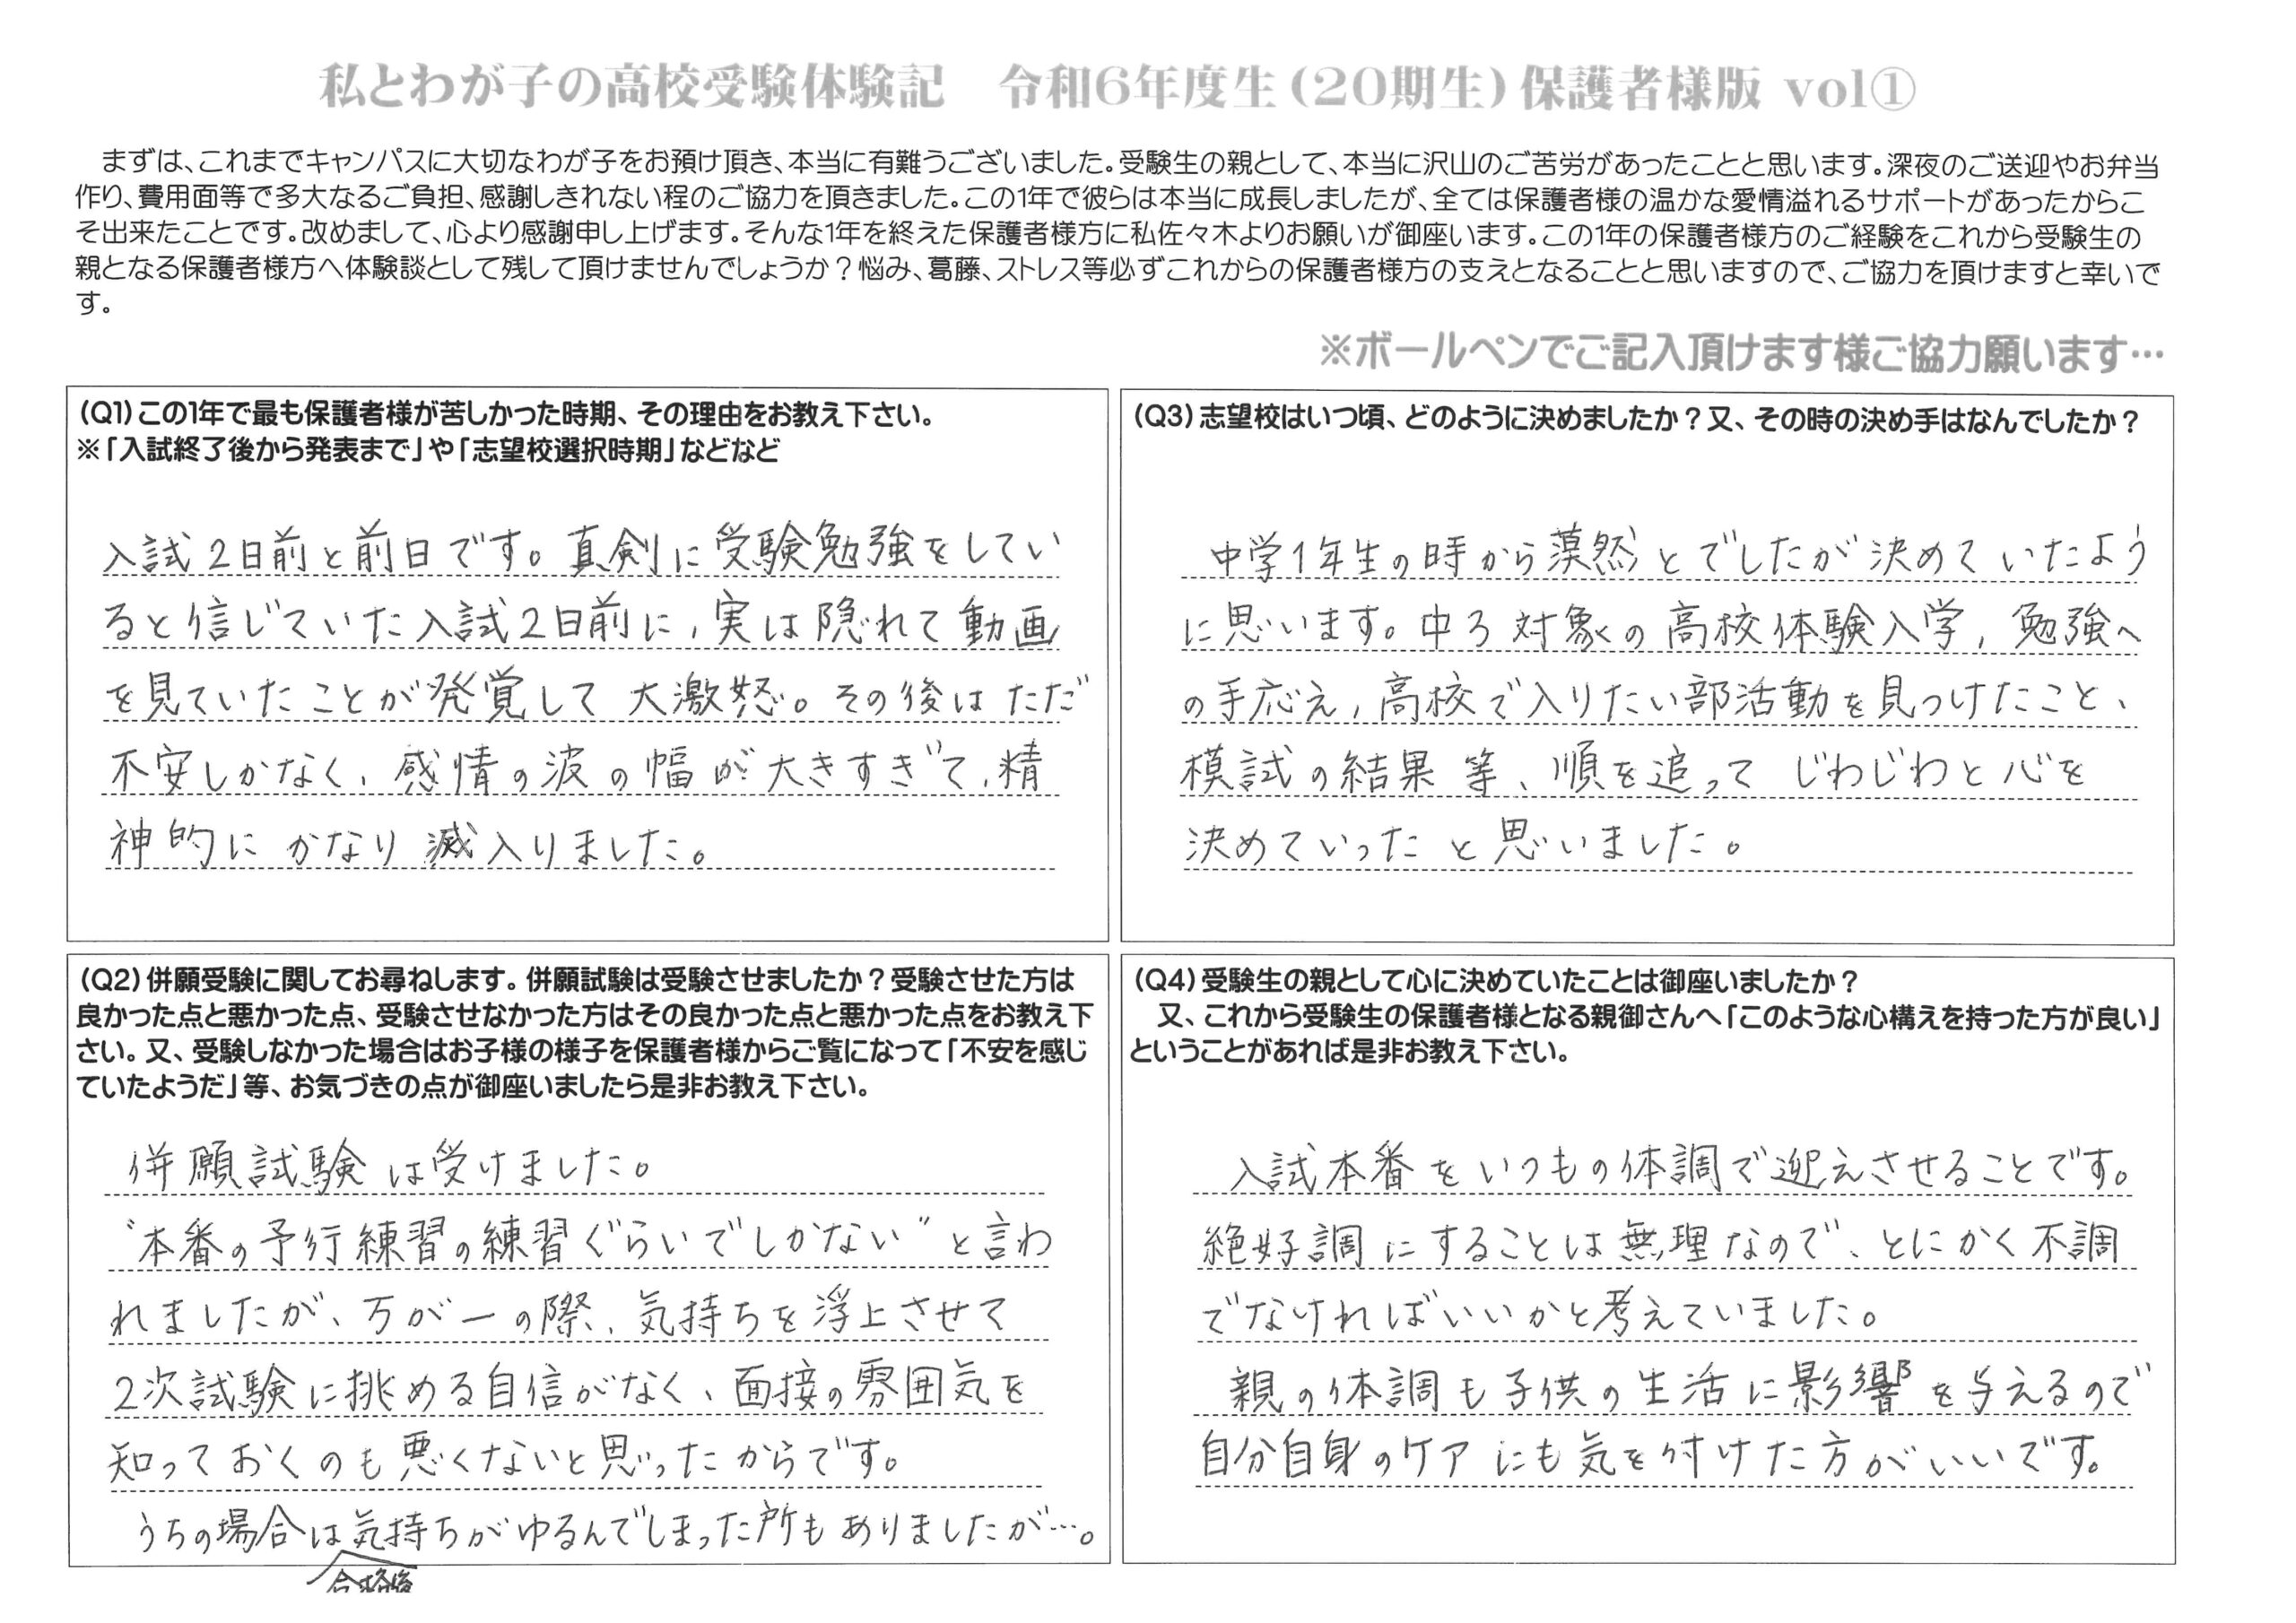 私とわが子の高校受験体験記　令和6年度生(20期生)保護者様版 vol①
まずは、これまでキャンパスに大切なわが子をお預け頂き、本当に有難うございました。受験生の親として、本当に沢山のご苦労があったことと思います。深夜のご送迎やお弁当
作り、費用面等で多大なるご負担、感謝しきれない程のご協力を頂きました。この1年で彼らは本当に成長しましたが、全ては保護者様の温かな愛情溢れるサポートがあったからこ
そ出来たことです。改めまして、心より感謝申し上げます。そんな1年を終えた保護者様方に私佐々木よりお願いが御座います。この1年の保護者様方のご経験をこれから受験生の
親となる保護者様方へ体験談として残して頂けませんでしょうか？悩み、葛藤、ストレス等必ずこれからの保護者様方の支えとなることと思いますので、ご協力を頂けますと幸いで
す。
※ボールペンでご記入頂けます様ご協力願います…
(Q1)この1年で最も保護者様が苦しかった時期、その理由をお教え下さい。
※「入試終了後から発表まで」や「志望校選択時期」などなど
入試2日前と前日です。真剣に受験勉強をしてい
ると信じていた入試2日前に、実は隠れて動画
を見ていたことが発覚して大激怒。その後はただ
不安しかなく、感情の波の幅が大きすぎて、精
神的にかなり滅入りました。
(Q2)併願受験に関してお尋ねします。併願試験は受験させましたか？受験させた方は
良かった点と悪かった点、受験させなかった方はその良かった点と悪かった点をお教え下
さい。又、受験しなかった場合はお子様の様子を保護者様からご覧になって「不安を感じ
ていたようだ」等、お気づきの点が御座いましたら是非お教え下さい。
併願試験は受けました。
“本番の予行練習の練習ぐらいでしかない”と言わ
れましたが、万が一の際、気持ちを浮上させて
2次試験に挑める自信がなく、面接の雰囲気を
知っておくのも悪くないと思ったからです。
うちの場合は気持ちがゆるんでしまった所もありましたが…。
合格後
(Q3)志望校はいつ頃、どのように決めましたか？又、その時の決め手はなんでしたか？
中学1年生の時から漠然とでしたが決めていたよう
に思います。中3対象の高校体験入学, 勉強へ
の手応え, 高校で入りたい部活動を見つけたこと、
模試の結果等、順を追ってじわじわと心を
決めていったと思いました。
(Q4)受験生の親として心に決めていたことは御座いましたか？
又、これから受験生の保護者様となる親御さんへ「このような心構えを持った方が良い」
ということがあれば是非お教え下さい。
入試本番をいつもの体調で迎えさせることです。
絶好調にすることは無理なので、とにかく不調
でなければいいかと考えていました。
親の体調も子供の生活に影響を与えるので
自分自身のケアにも気を付けた方がいいです。